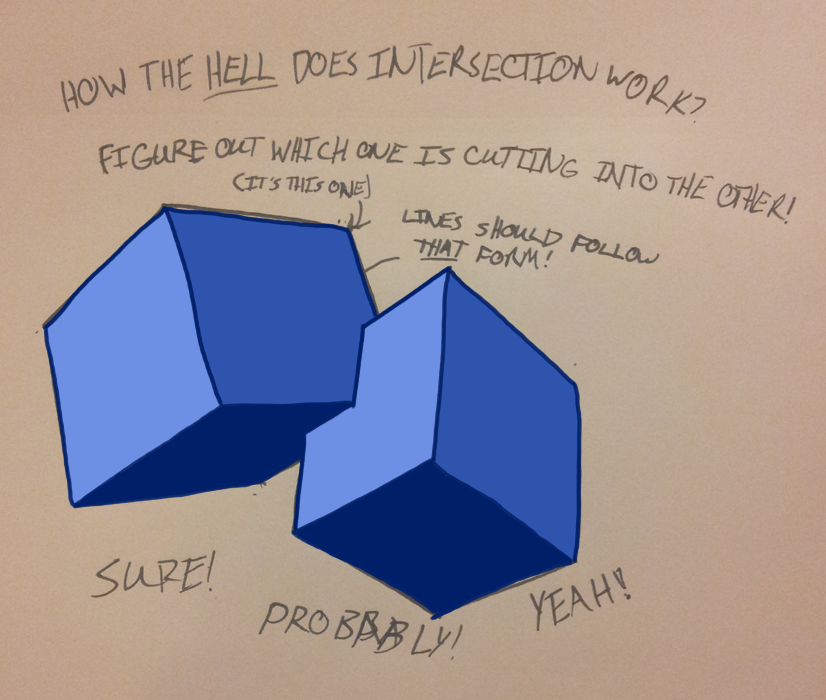 HOW THE HELL DOES INTERSECTION WORK?
FIGURE OUT WHICH ONE IS CUTTING INTO THE OTHER!
(IT'S THIS ONE)
LINES SHOULD FOLLOW
THAT FORM!
SURE!
PROBABLY!
YEAH!